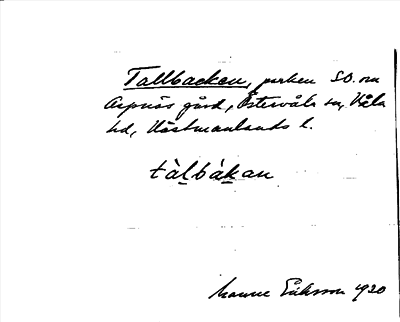 Tallbacken, parken S.O. om
Aspnäs gård, Östervåla sn, Våla
hd, Västmanlands l.
tàl̠bàk̠an
Manne Eriksson 1920